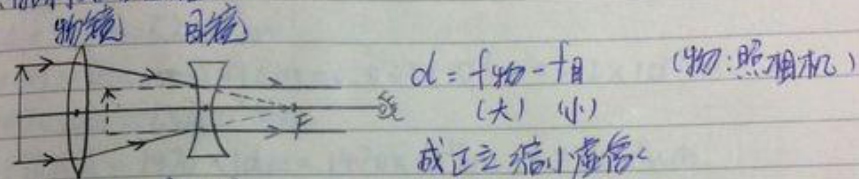 物镜 目镜
d = f物 - f目 (物:照相机)
(大) (小)
F
成正立缩小虚像